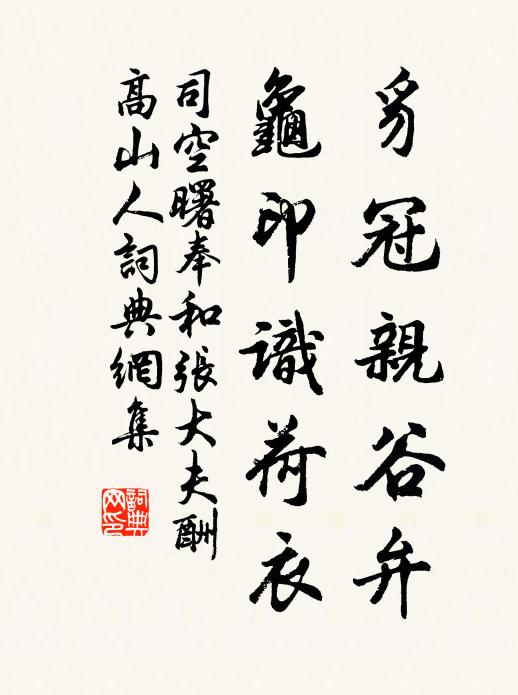 豸冠親谷弁
龜印識荷衣
司空曙奉和張大夫酬
高山人詞典網集
詞典網印